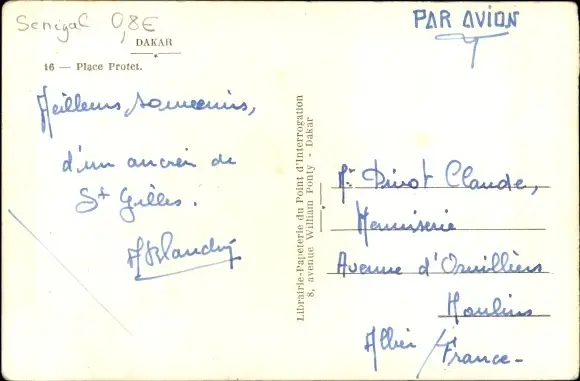 Senégal 0,8€
DAKAR
16 — Place Protet.
PAR AVION
Meilleurs souvenirs,
d'un ancien de
St Gilles.
Librairie-Papeterie du Point d'Interrogation
8, avenue William Ponty - Dakar
Mr Pinot Claude,
Menuiserie
Avenue d'Orvilliers
Moulins
Allier / France -